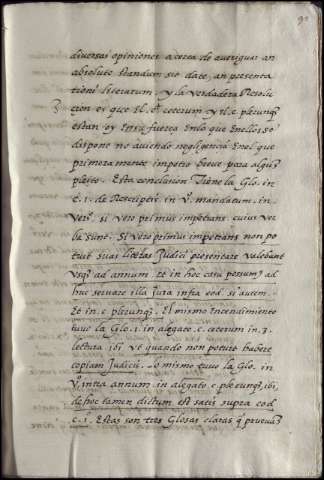 diversas opiniones acerca de averiguar an
absolute standum sit date, an presenta
tioni literarum. y la verdadera Resolu
cion es que El c. ceterum y El c. plerunq
estan oy En su fuerça En lo que En ellos se
dispone no auiendo negligencia En el que
primeramente impetro breve para algun
pleyto. Esta conclusion Tiene la Glo. in
c. 1. de Rescriptis. in v. mandatum. in
vers. si vero primus impetrans. cuius ver
ba sunt. Si vero primus impetrans non po
tuit suas literas Judici presentare valebunt
usq ad annum. Et in hoc casu possunt ad
huc servare illa Jura infra eod. si autem.
Et in c. plerunq. El mismo Entendimiento
tuvo la Glo. 1. in alegato c. ceterum in 3.
lectura ibi vel quando non potuit habere
copiam Judicis. Lo mismo tuvo la Glo. in
v. intra annum. in alegato c. plerunq, ibi,
de hoc tamen dictum est satis supra eod
c. 1. Estas son tres Glosas claras q pruevan